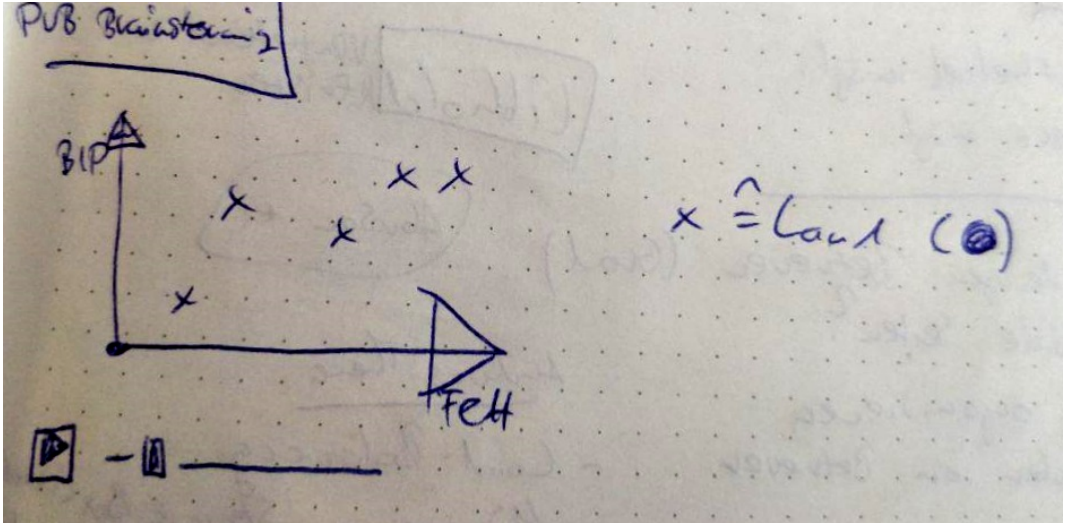 PUB Brainstorming
BIP
x ≙ Land ( )
Fett